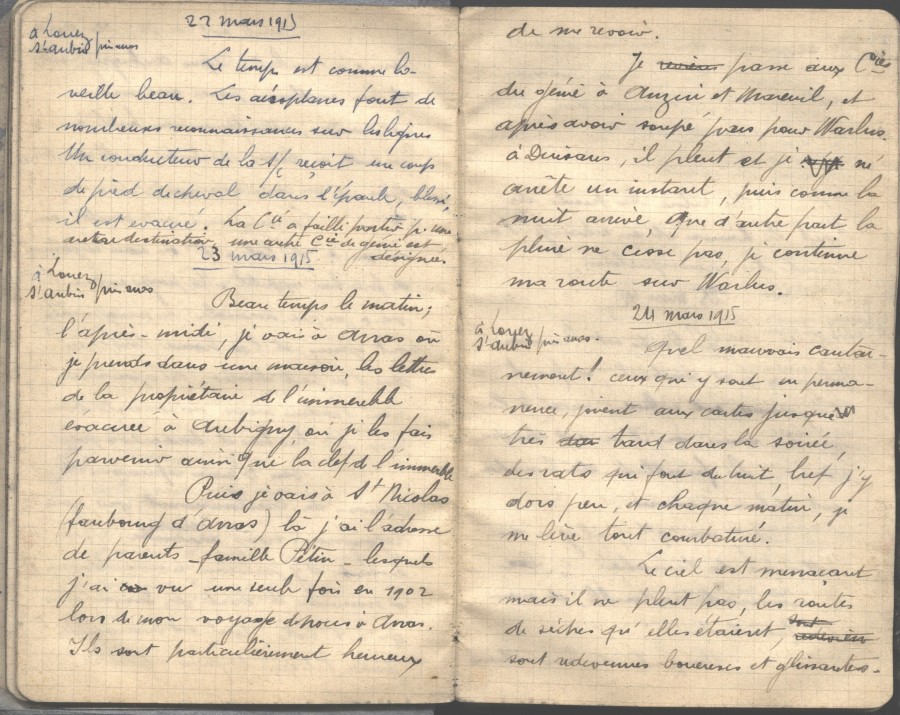 22 mars 1915
à Louez
St Aubin / puis anos
Le temps est comme la
veille beau. Les aéroplanes font de
nombreuses reconnaissances sur les lignes
Un conducteur de la S/C reçoit un coup
de pied de cheval dans l'épaule, blessé,
il est évacué. La Cie a failli partir p. une
autre destination, une autre Cie de génie est
désignée.
23 mars 1915
à Louez
St Aubin / puis anos
Beau temps le matin;
l'après-midi, je vais à Arras où
je prends dans une maison, les lettres
de la propriétaire de l'immeuble
évacuée à Aubigny, où je les fais
parvenir ainsi que la clef de l'immeuble
Puis je vais à St Nicolas
(faubourg d'Arras) là j'ai l'adresse
de parents - famille Pétin - lesquels
j'ai vu une seule fois en 1902
lors de mon voyage de noces à Arras.
Ils sont particulièrement heureux
de me revoir.
Je reviens passe aux Cies
du génie à Anzin et Mareuil, et
après avoir soupé pars pour Warlus.
à Duisans, il pleut et je m'
arrête un instant, puis comme la
nuit arrive, que d'autre part la
pluie ne cesse pas, je continue
ma route sur Warlus.
24 mars 1915
à Louez
St Aubin / puis anos.
Quel mauvais canton-
nement! ceux qui y sont en perma-
nence, jouent aux cartes jusque
très tard dans la soirée,
des rats qui font du bruit, bref j'y
dors peu, et chaque matin, je
me lève tout courbaturé.
Le ciel est menaçant
mais il ne pleut pas, les routes
de sèches qu'elles étaient, sont
sont redevenues boueuses et glissantes.